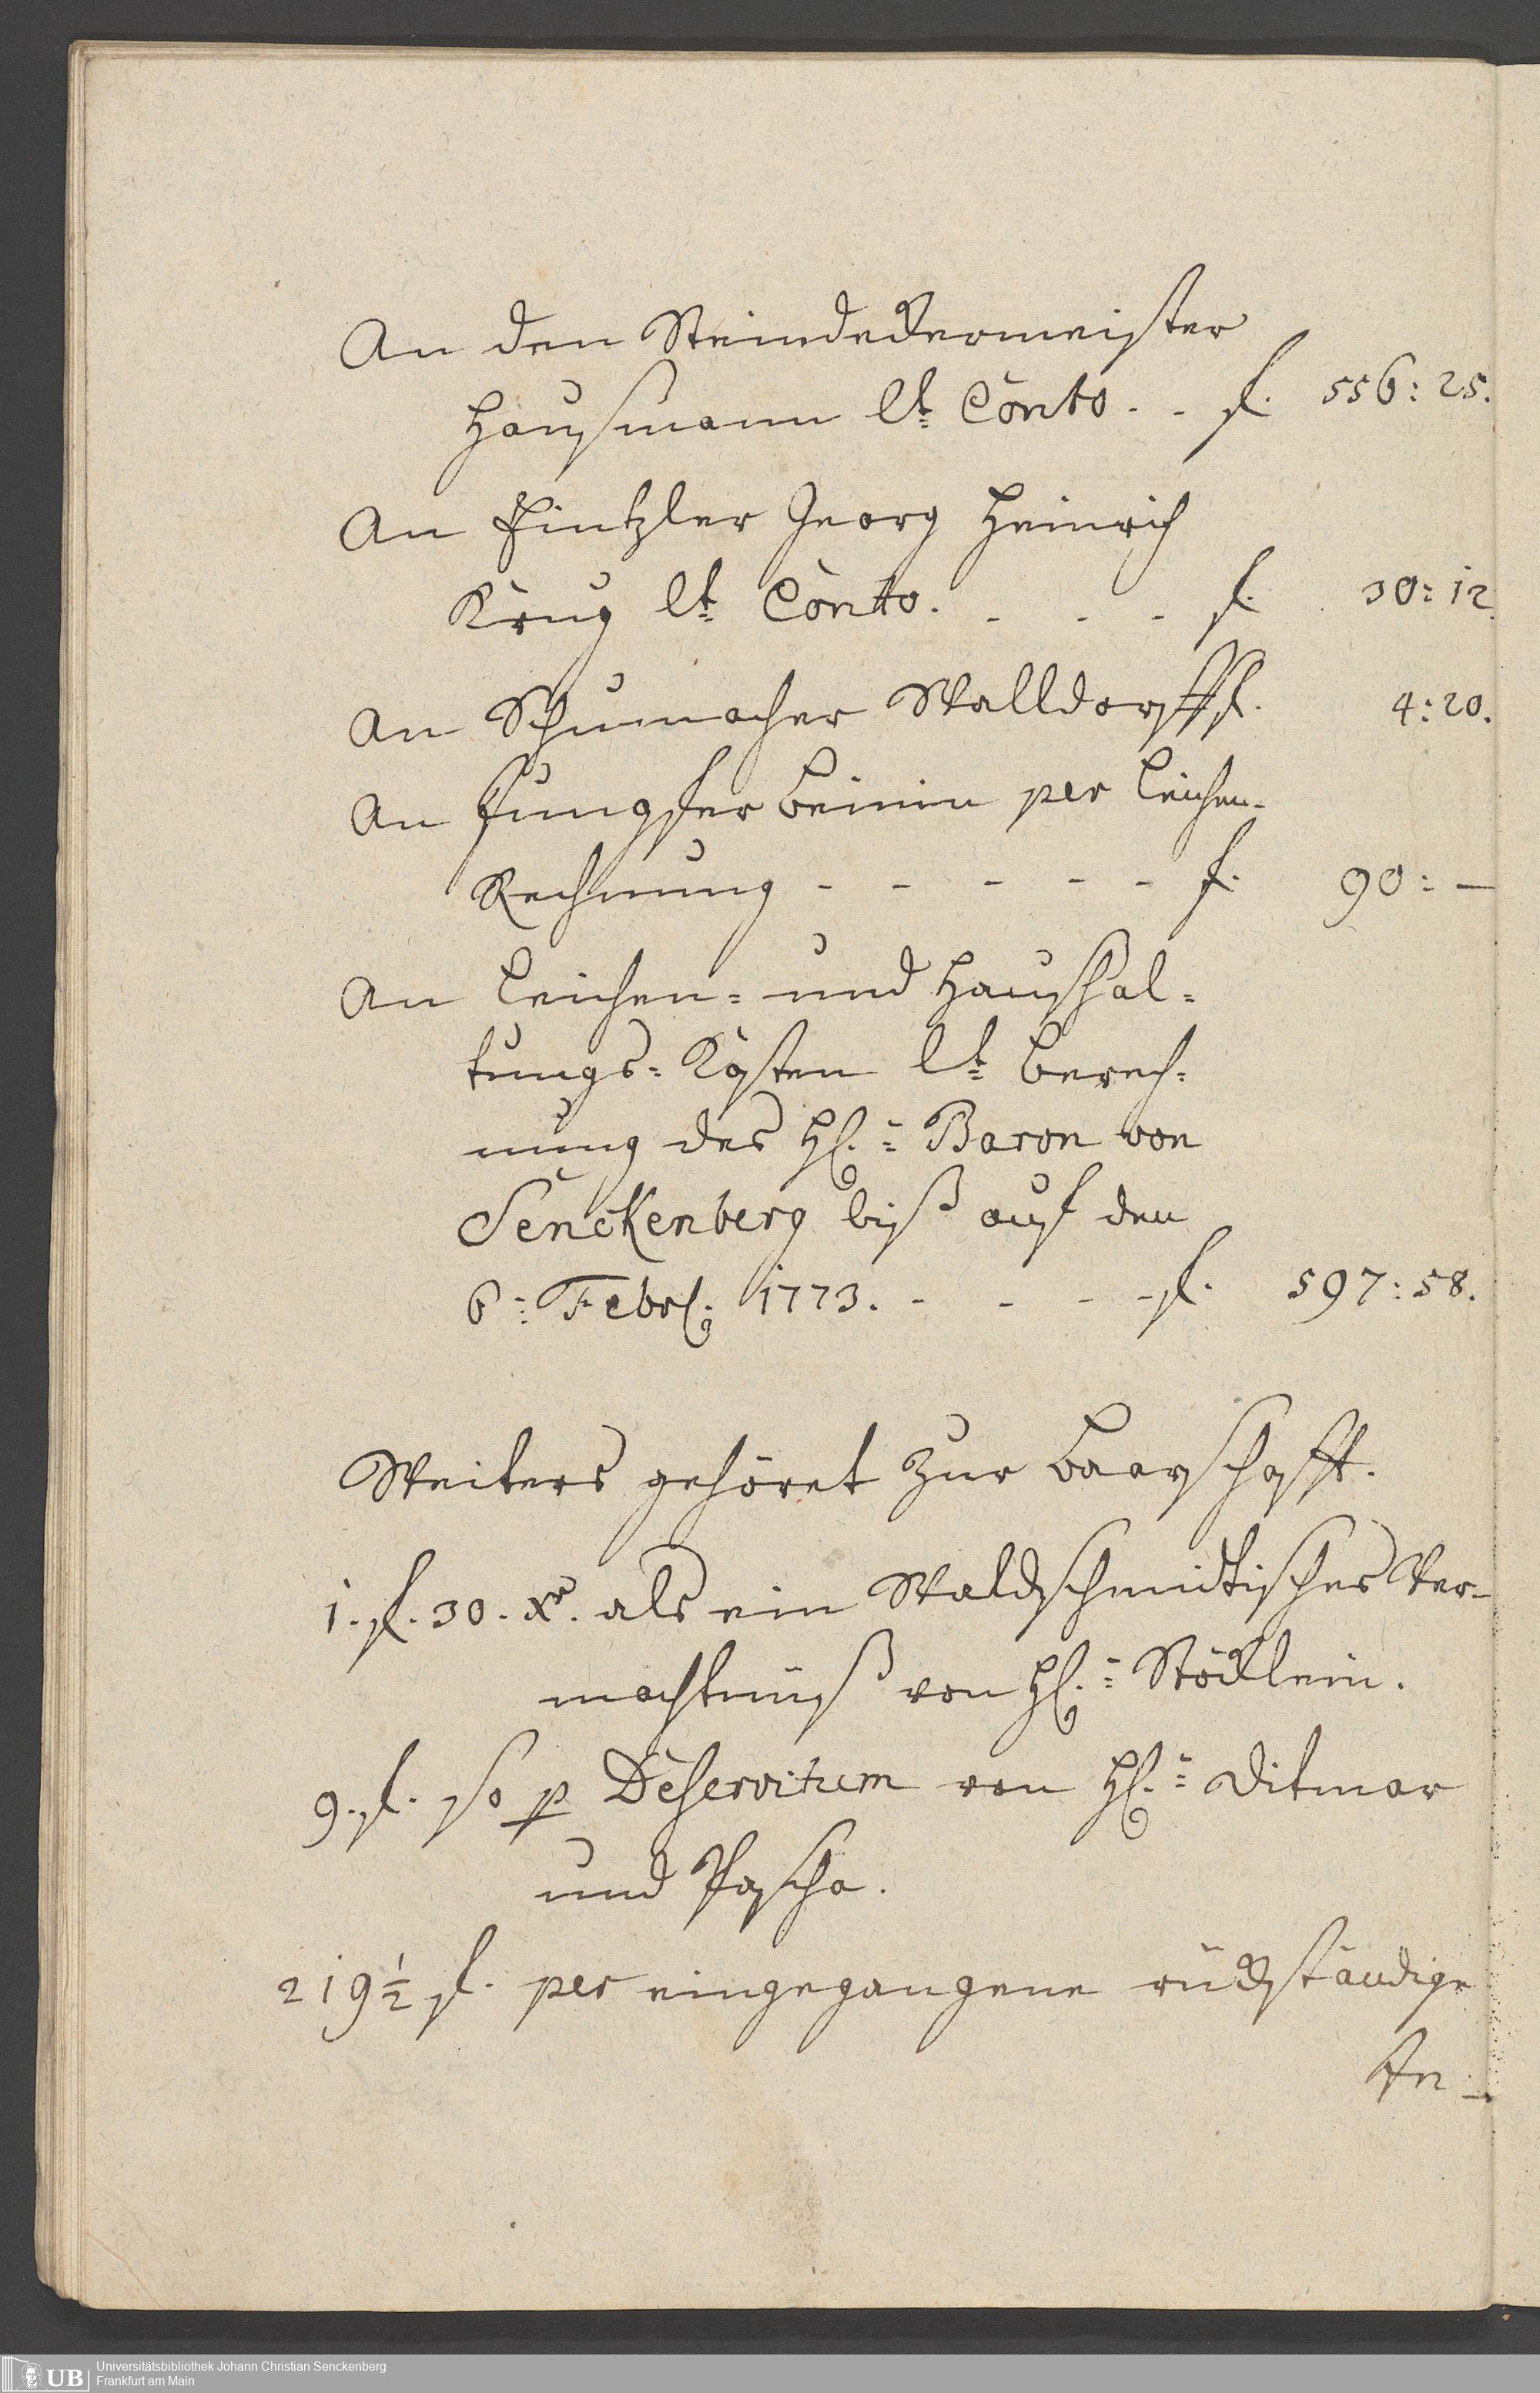 An den Steindeckermeister
Haußmann lt: Conto. - - f. 556: 25.
An Hintzler Georg Heinrich
Krug lt: Conto. - - - - f. 30: 12.
An Schumacher Walldorff f. 4: 20.
An Jungfer Beinin per Leichen-
Rechnung - - - - - f. 90: —
An Leichen- und Haushal-
tungs-Kosten lt: Berech-
nung des H: Baron von
Senckenberg biß auf den
6: Febr: 1773. - - - - f. 597: 58.
Weiters gehöret zur Baarschafft.
1. f. 30. Xr. als ein Waldschmidtisches Ver-
mächtnüß von H: Stöcklein.
9. f. so p Deservitum von H: Ditmar
und Pascha.
219½ f. per eingegangene rückständige
In-
UB
Universitätsbibliothek Johann Christian Senckenberg
Frankfurt am Main